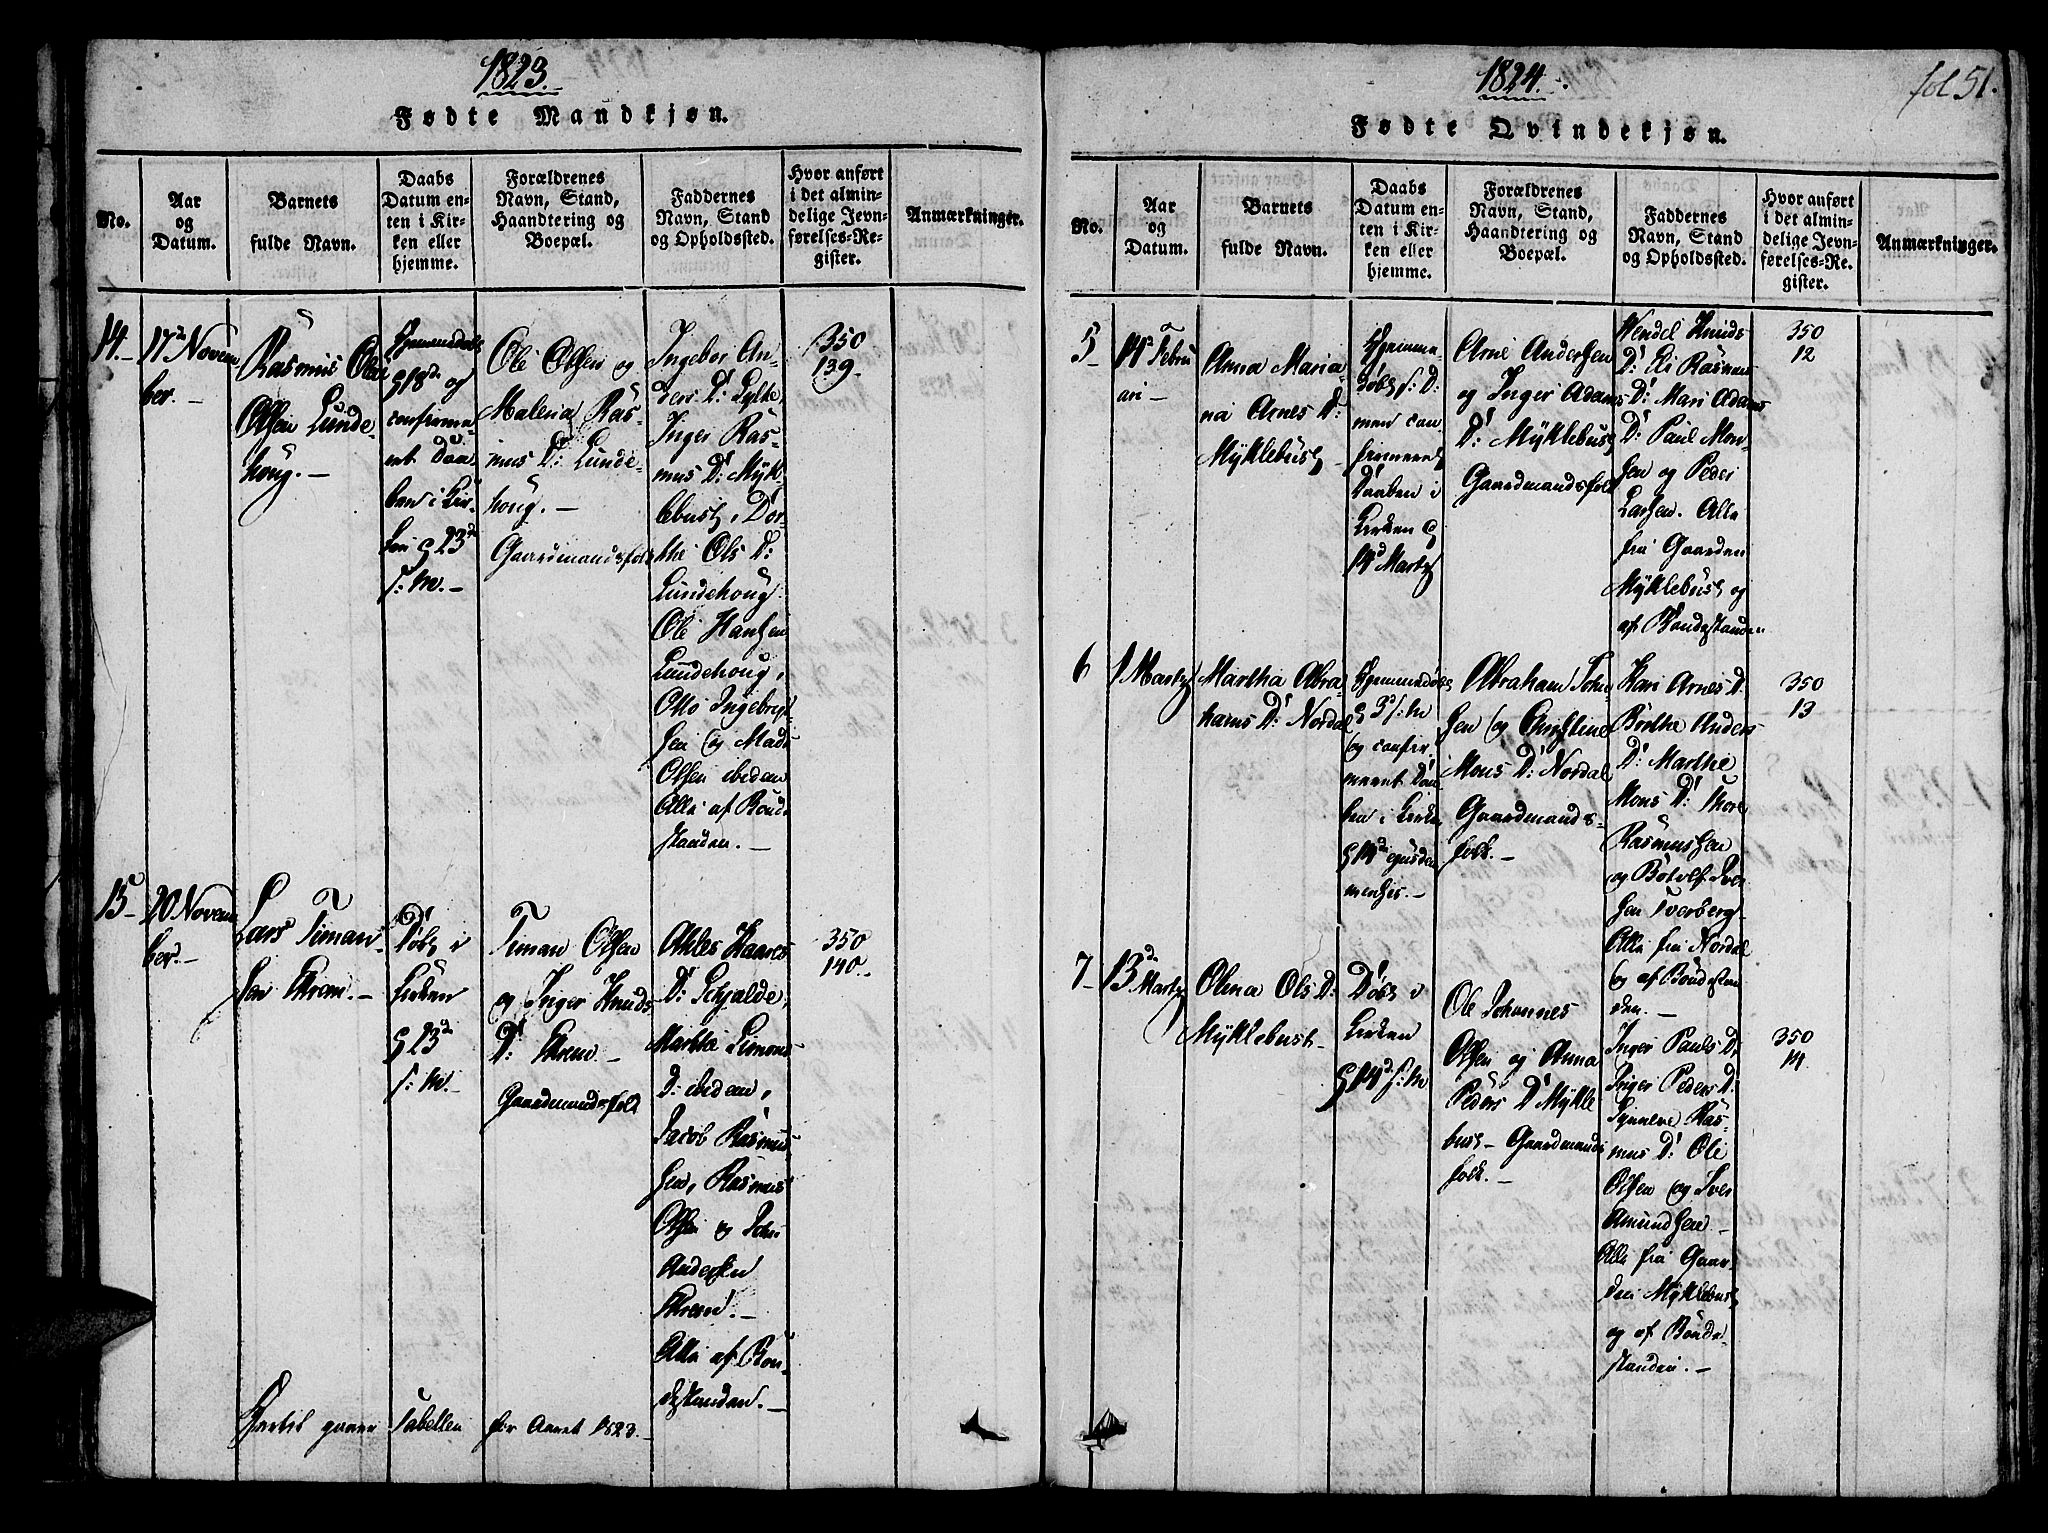 1823.
Fødte Mandkjøn.
No.
Aar
og
Datum.
Barnets
fulde Navn.
Daabs
Datum en-
ten i Kir-
ken eller
hjemme.
Forældrenes
Navn, Stand,
Haandtering og
Boepæl.
Faddernes
Navn, Stand
og Opholdssted.
Hvor anført
i det almin-
delige Jevn-
førelses-Re-
gister.
Anmærkninger.
14.
17de Novem
ber.
Rasmus Ole
Olsen Lunde-
houg.
Hjemmedøbt
d 18de og
confirme-
ret Daa-
ben i Kir-
ken d 23de
s: M.
Ole Olsen og
Malena Ras-
mus D: Lunde-
houg.
Gaardmandsfolk
Ingebor An-
ders D: Lylke,
Inger Ras-
mus D: Mykl-
lebust, Dor-
the Ols D:
Lundehoug
Ole Hansen
Lundehoug,
Otto Ingebrigt-
sen og Mads
Olsen ibidem
Alle af Bonde
standen.
350
139.
15
20 Novem
ber.
Lars Timan-
sen Ekrem.
Døbt i
Kirken
d 23de
s: M.
Timan Olsen
og Inger Knuds
D: Ekrem
Gaardmandsfold
D: Schjolde,
Marthe Simons
D: ibidem,
Jacob Rasmus-
sen, Rasmus
Olsen og John
Andersen
Ekrem.
Alle af Bon-
destanden.
350
140.
Hertil gaaer Tabellen for Aaret 1823.
1824.
fol 51.
Fødte Qvindekjøn.
No.
Aar
og
Datum.
Barnets
fulde Navn.
Daabs
Datum en-
ten i Kir-
ken eller
hjemme.
Forældrenes
Navn, Stand,
Haandtering og
Boepæl.
Faddernes
Navn, Stand
og Opholdssted.
Hvor anført
i det almin-
delige Jevn-
førelses-Re-
gister.
Anmærkninger.
5
Febru
ari
Anna Maria-
na Arnes D:
Myklebust
Hjemme-
døbt s: D:
men con
firmeret
Daaben i
Kirken d
14d Martz
Arne Andersen
og Inger Adams
D: Myklebust
Gaardmandsfolk
Wendel Knuds
D: Li Rasmus
D: Mari Adams
D: Paul Mon-
sen og Peder
Larsen. Alle
fra Gaarden
Myklebust og
af Bondestanden
350
12
6
1 Martz
Martha Abra-
hams D: Nordal
Hjemmedøbt
d 3d s: M
og confir-
meret Daa
ben i Kirken
d 14de ejusdem
mensis.
Abraham John
sen og Christine
Mons D: Nordal
Gaardmands-
folk.
Kari Arnes D:
Brethe Anders
D: Marthe
Mons D: Thore
Rasmussen
og Botolf Iver
sen Tverberg
Alle fra Nordal
og af Bondestan
den.
350
13
7
13de
Martz
Olina Ols D:
Myklebust
Døbt i
Kirken
d 14d s: M
Ole Johannes
Olsen og Anna
Peders D: Mykle
bust Gaardmands
folk.
Inger Pauls D:
Inger Peders D:
Synneve Ras-
mus D: Ole
Olsen og Iver
Amundsen
Alle fra Gaar-
den Myklebust
og af Bonde
standen.
350
14.